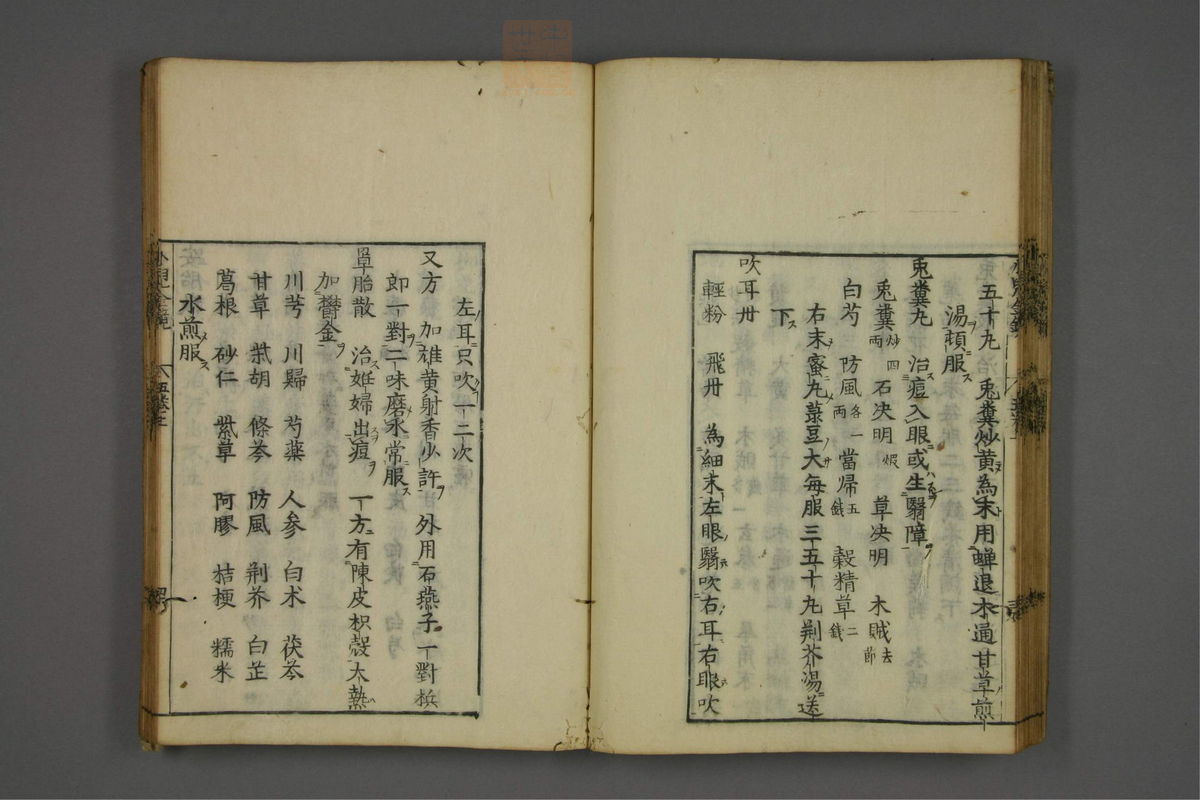 五十九 兎糞炒黄為末用蝉退木通甘草煎
湯頓服
兎糞丸 治痘入眼或生翳障
兎糞炒四両 石决明煆 草决明 木賊去節
白芍 防風各一両 當帰五銭 穀精草二銭
右末蜜丸菉豆大毎服三五十丸荆芥湯送
下
吹耳丹
輕粉 飛丹 為細末左眼翳吹右耳右眼吹
左耳只吹一二次
又方 加雄黄射香少許 外用石燕子一對檳
即一對二味磨水常服
罩胎散 治妊婦出痘 一方有陳皮枳殻太熱
加鬱金
川芎 川歸 芍薬 人参 白术 茯苓
甘草 柴胡 條芩 防風 荆芥 白芷
葛根 砂仁 紫草 阿膠 桔梗 糯米
水煎服